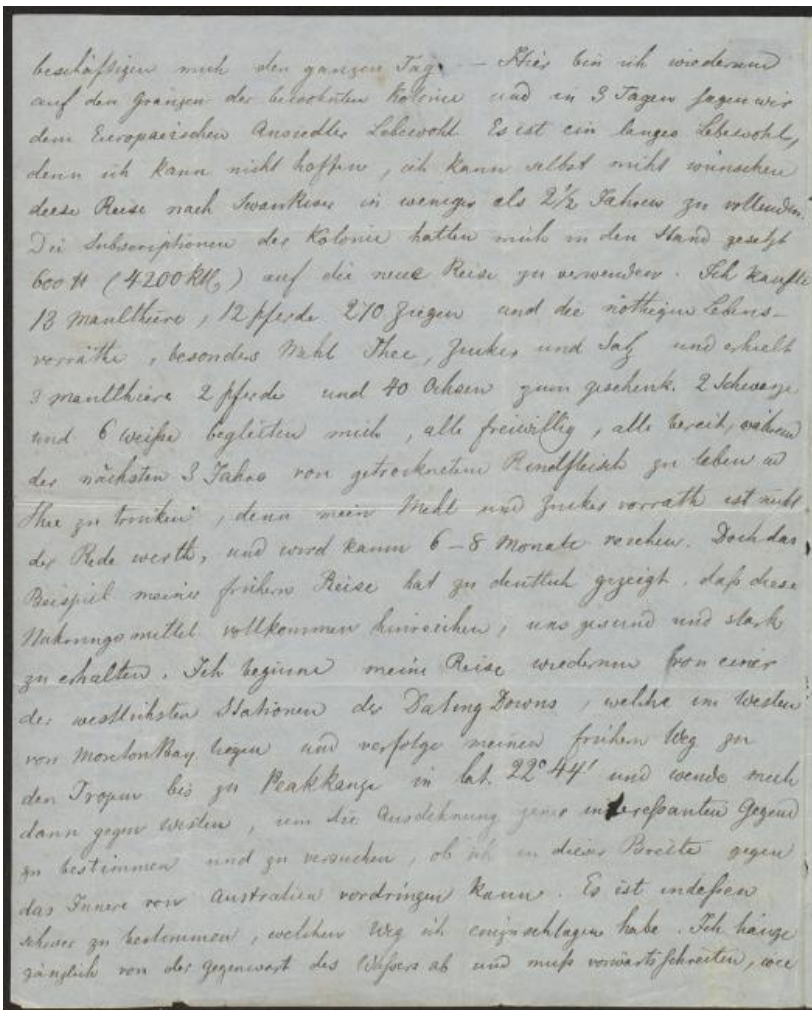 beschäftigen mich den ganzen Tag. — Hier bin ich wiederum
auf den Gränzen der bewohnten Kolonie und in 3 Tagen sagen wir
dem Europaeischen Ansiedler Lebewohl. Es ist ein langes Lebewohl,
denn ich kann nicht hoffen, ich kann selbst nicht wünschen
diese Reise nach SwanRiver in weniger als 2½ Jahren zu vollenden.
Die Subscriptionen der Kolonie hatten mich in den Stand gesetzt
600 (4200) auf die neue Reise zu verwenden. Ich kaufte
13 Maulthiere, 12 Pferde 270 Ziegen und die nöthigen Lebens-
vorräthe, besonders Mehl Thee, Zucker und Salz und erhielt
3 Maulthiere 2 Pferde und 40 Ochsen zum Geschenk. 2 Schwarze
und 6 weiße begleiten mich, alle freiwillig, alle bereit, während
der nächsten 3 Jahre von getrocknetem Rindfleisch zu leben u
Thee zu trinken, denn mein Mehl und Zucker vorrath ist nicht
der Rede werth, und wird kaum 6–8 Monate reichen. Doch das
Beispiel meiner frühern Reise hat zu deutlich gezeigt, daß diese
Nahrungsmittel vollkommen hinreichen, uns gesund und stark
zu erhalten. Ich beginne meine Reise wiederum von einer
der westlichsten Stationen der Darling Downs, welche im Westen
von MoretonBay liegen und verfolge meinen frühern Weg zu
den Tropen bis zu PeakRange in lat. 22° 44' und wende mich
dann gegen Westen, um die Ausdehnung jener interessanten Gegend
zu bestimmen und zu versuchen, ob ich in dieser Breite gegen
das Innere von Australien vordringen kann. Es ist indeßen
schwer zu bestimmen, welchen Weg ich einzuschlagen habe. Ich hänge
gänzlich von der Gegenwart des Waßers ab und muß vorwärts schreiten, wie